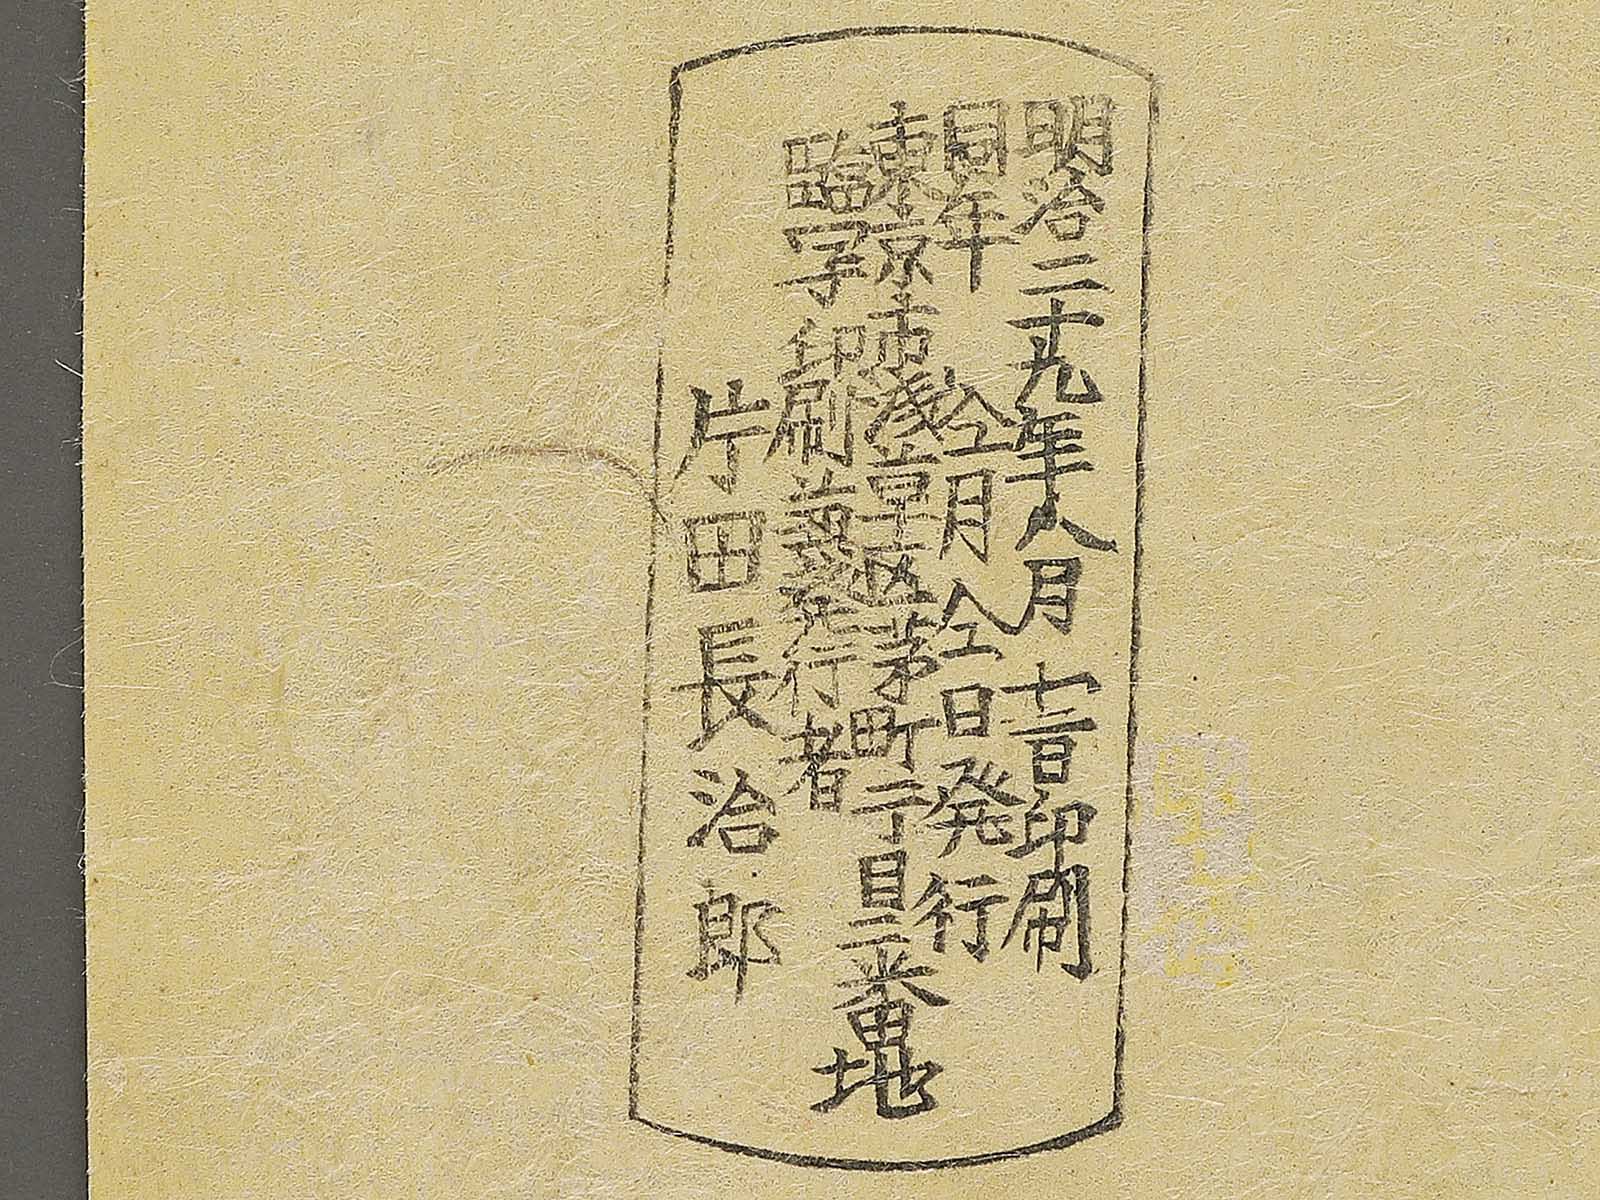 明治二十九年八月十三日印刷
同年仝月仝日発行
東京市浅草区茅町二丁目二番地
臨写印刷兼発行者
片田長治郎